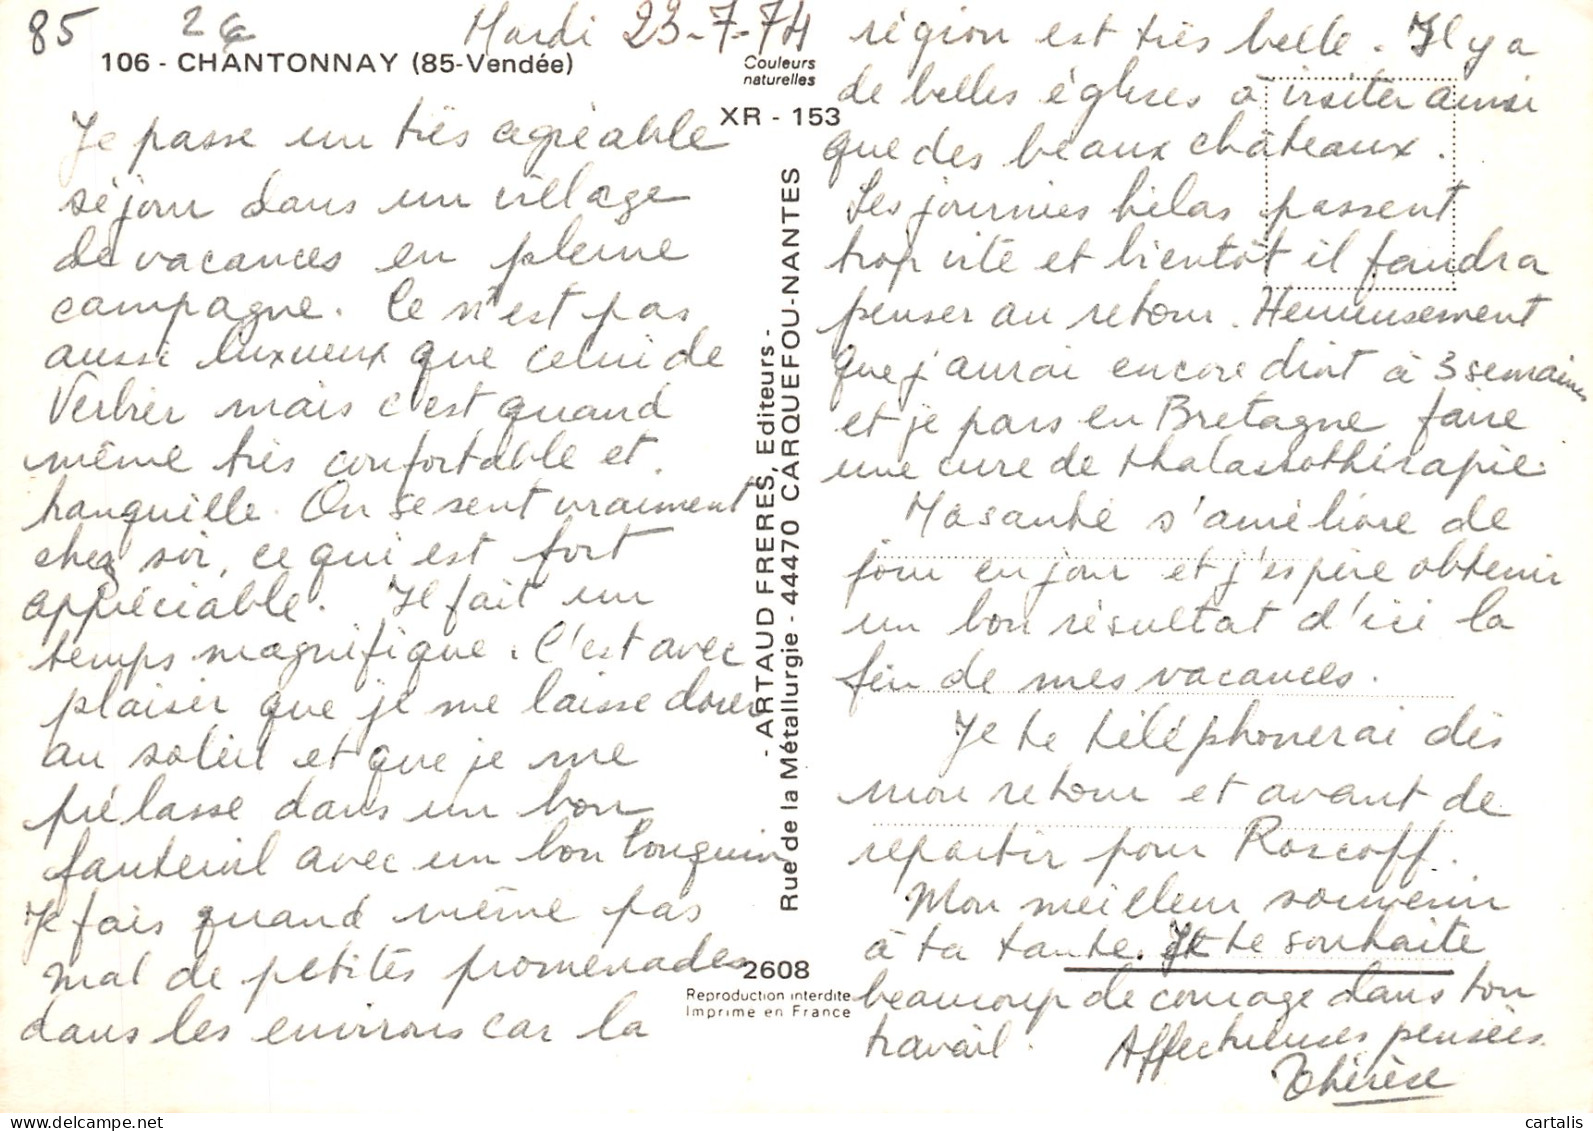 85
2€
Mardi 23-7-74
106 - CHANTONNAY (85-Vendée)
Couleurs
naturelles
XR - 153
Je passe un très agréable
séjour dans un village
de vacances en pleine
campagne. Ce n'est pas
aussi luxueux que celui de
Verbier mais c'est quand
même très confortable et
tranquille. On se sent vraiment
chez soi, ce qui est fort
appréciable. Il fait un
temps magnifique. C'est avec
plaisir que je me laisse dorer
au soleil et que je me
prélasse dans un bon
fauteuil avec un bon bouquin
Je fais quand même pas
mal de petites promenades
dans les environs car la
- ARTAUD FRERES, Editeurs -
Rue de la Métallurgie - 44470 CARQUEFOU-NANTES
2608
Reproduction interdite
Imprimé en France
région est très belle. Il y a
de belles églises à visiter ainsi
que des beaux châteaux.
Les journées hélas passent
trop vite et bientôt il faudra
penser au retour. Heureusement
que j'aurai encore droit à 3 semaines
et je pars en Bretagne faire
une cure de thalassothérapie.
Ma santé s'améliore de
jour en jour et j'espère obtenir
un bon résultat d'ici la
fin de mes vacances.
Je te téléphonerai dès
mon retour et avant de
repartir pour Roscoff.
Mon meilleur souvenir
à ta tante. Je te souhaite
beaucoup de courage dans ton
travail. Affectueuses pensées.
Thérèse
delcampe.net
cartalis